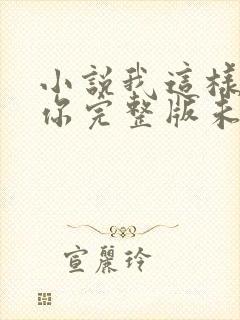 小說我這樣
你完整版未
宣麗玲